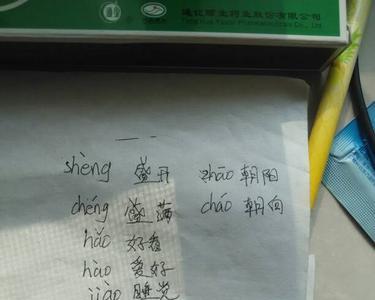 通化颐生药业股份有限公司
Tong Hua Yisheng Pharmaceutical Co., Ltd
shèng 盛开 zhāo 朝阳
chéng 盛满 cháo 朝向
hǎo 好看
hào 爱好
jiào 睡觉